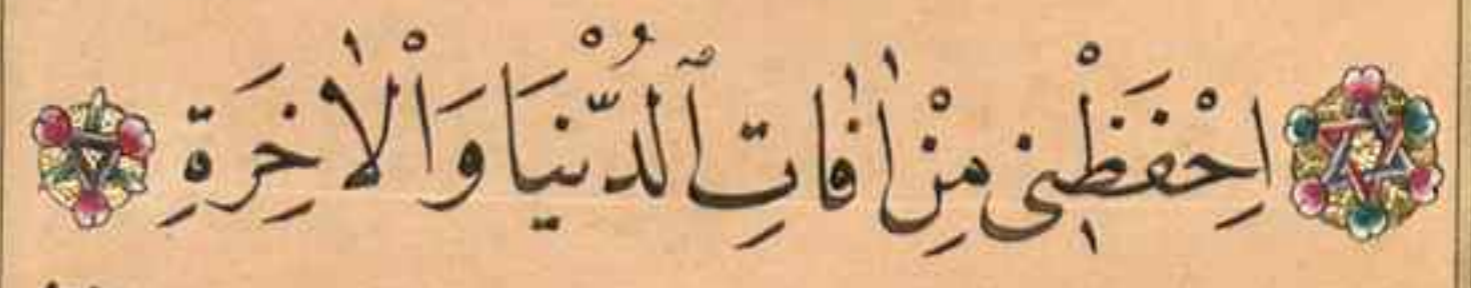 اِحْفَظْنٖى مِنْ اٰفَاتِ ٱلدُّنْيَا وَالْاٰخِرَةِ